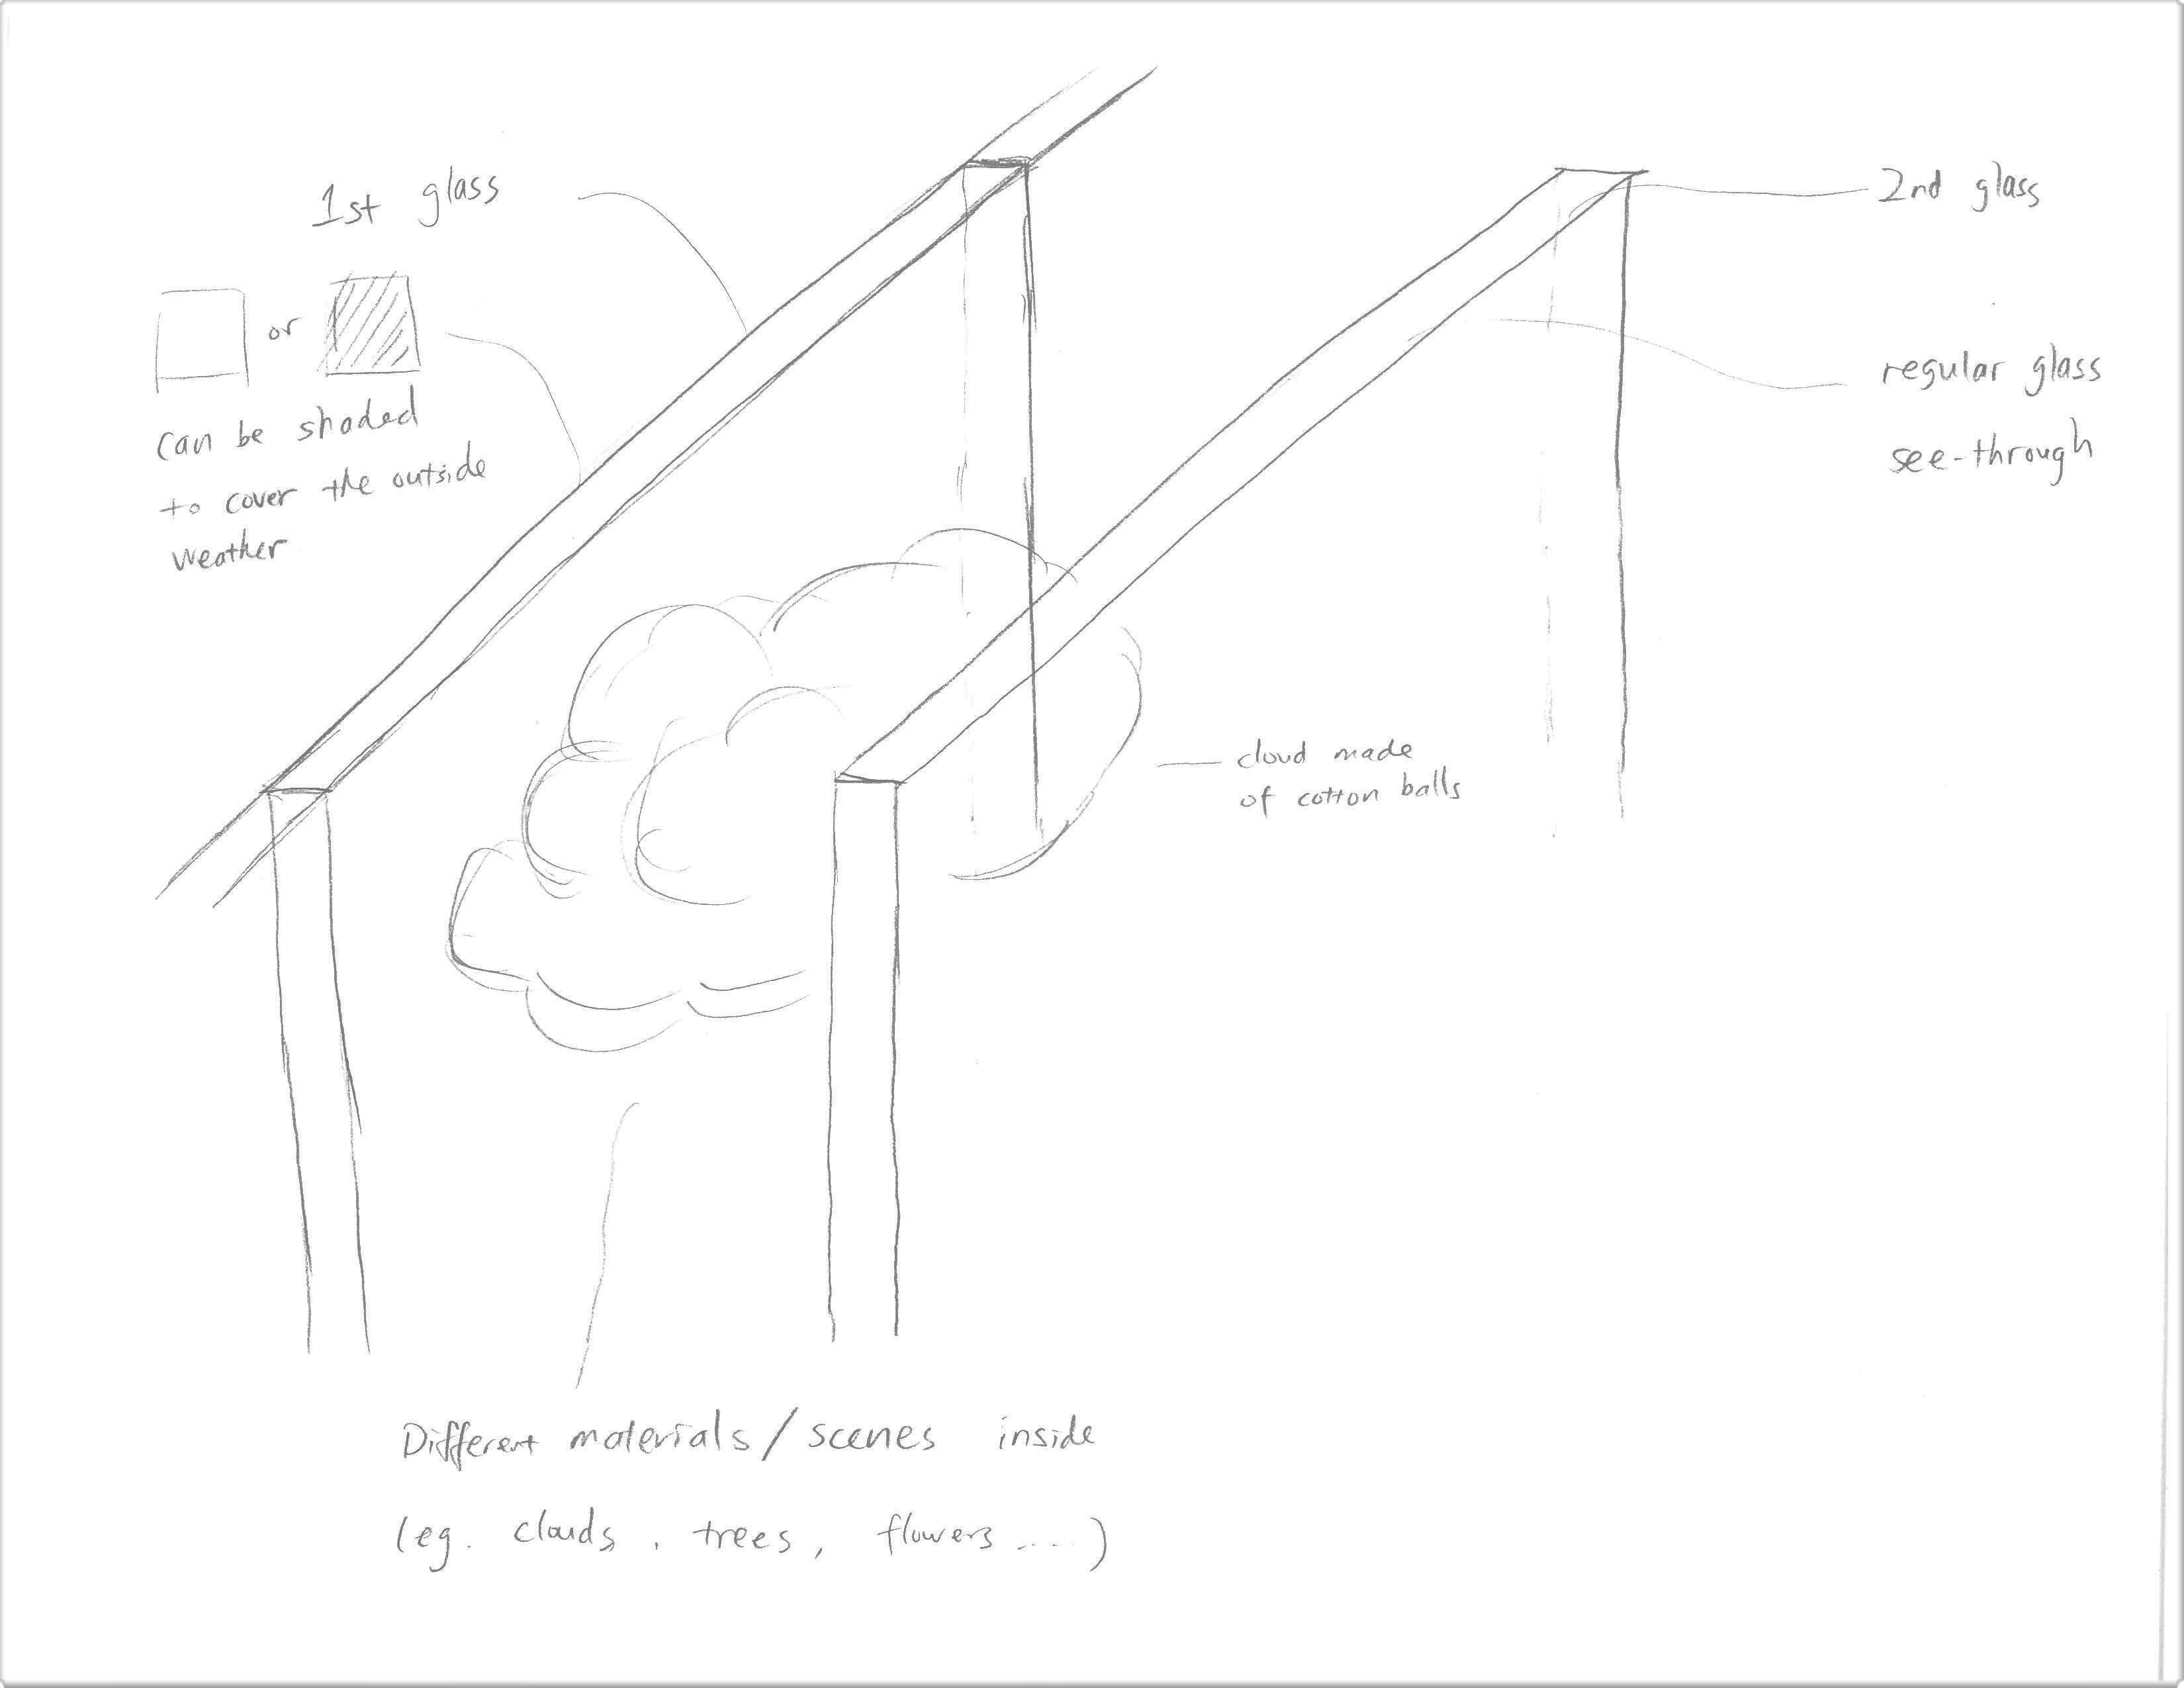 1st glass
or
can be shaded
to cover the outside
weather
2nd glass
regular glass
see-through
cloud made
of cotton balls
Different materials/scenes inside
(eg. clouds, trees, flowers ....)